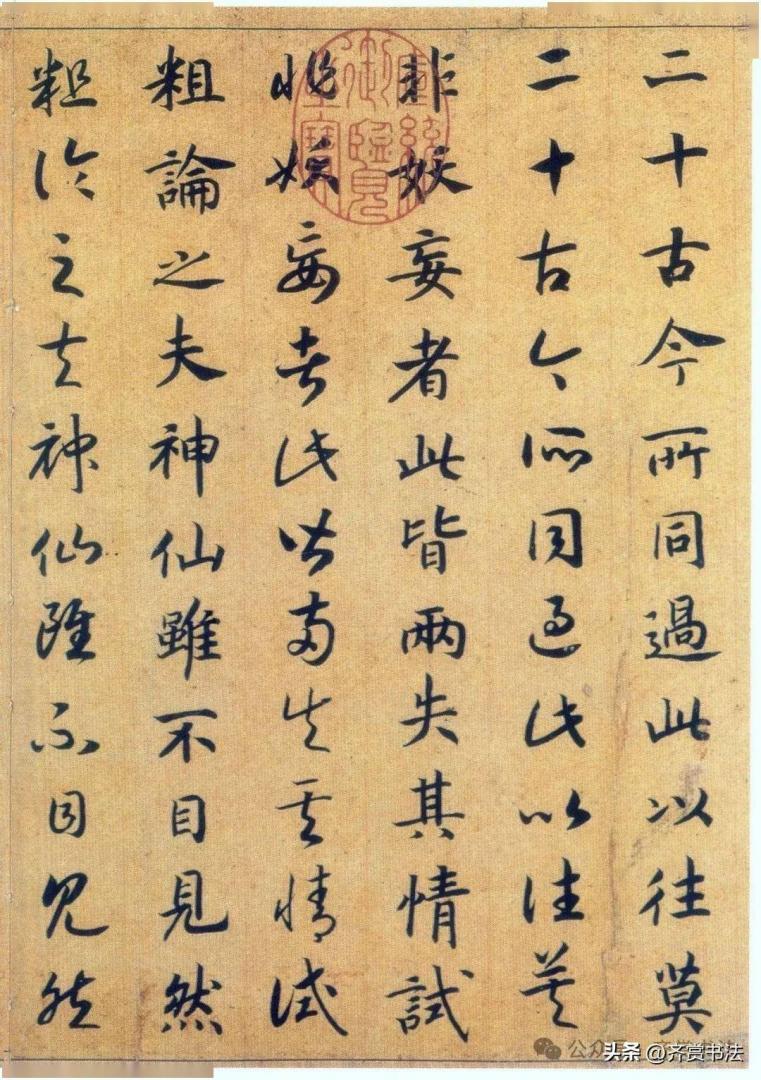 二十古今所同過此以往莫
二十古今所同過此以往莫
非妖妄者此皆兩失其情試
非妖妄者此皆兩失其情試
粗論之夫神仙雖不目見然
粗論之夫神仙雖不目見然
乾隆御覽之寶
头条 @齐赏书法